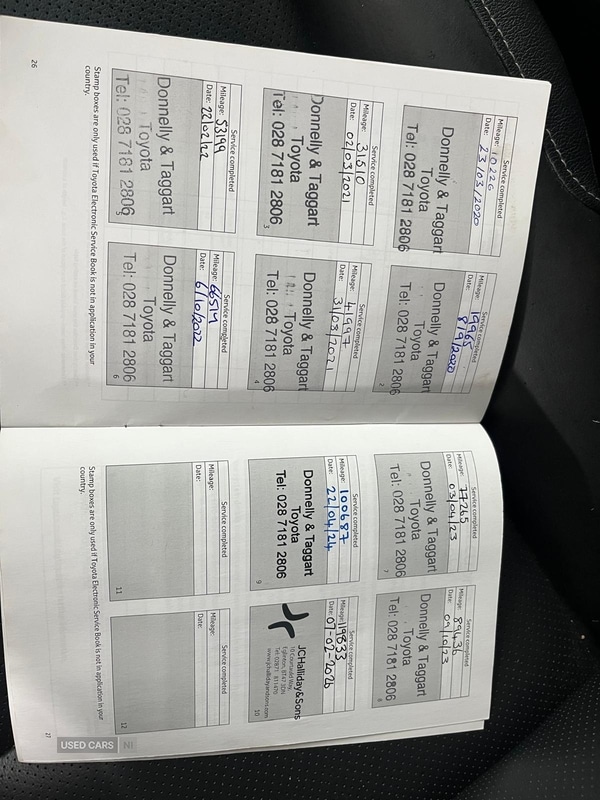 Service completed
Mileage: 10226
Date: 23/03/2020
Donnelly & Taggart
Toyota
Tel: 028 7181 2806
Service completed
Mileage: 19965
Date: 8/9/2020
Donnelly & Taggart
Toyota
Tel: 028 7181 2806
2
Service completed
Mileage: 31510
Date: 02/03/2021
Donnelly & Taggart
Toyota
Tel: 028 7181 2806
3
Service completed
Mileage: 41697
Date: 31/08/2021
Donnelly & Taggart
Toyota
Tel: 028 7181 2806
4
Service completed
Mileage: 53199
Date: 22/02/22
Donnelly & Taggart
Toyota
Tel: 028 7181 2806
5
Service completed
Mileage: 66519
Date: 6/10/2022
Donnelly & Taggart
Toyota
Tel: 028 7181 2806
6
Stamp boxes are only used if Toyota Electronic Service Book is not in application in your
country.
26
Service completed
Mileage: 77265
Date: 03/04/23
Donnelly & Taggart
Toyota
Tel: 028 7181 2806
7
Service completed
Mileage: 89436
Date: 09/10/23
Donnelly & Taggart
Toyota
Tel: 028 7181 2806
8
Service completed
Mileage: 100687
Date: 22/04/24
Donnelly & Taggart
Toyota
Tel: 028 7181 2806
9
Service completed
Mileage: 119833
Date: 07-02-2026
JCHalliday&Sons
10 Courtauld Way,
Eglinton, BT47 3DN
Tel: 02871 811470
www.jchallidayandsons.com
10
Service completed
Mileage:
Date:
11
Service completed
Mileage:
Date:
12
Stamp boxes are only used if Toyota Electronic Service Book is not in application in your
country.
27
USED CARS NI